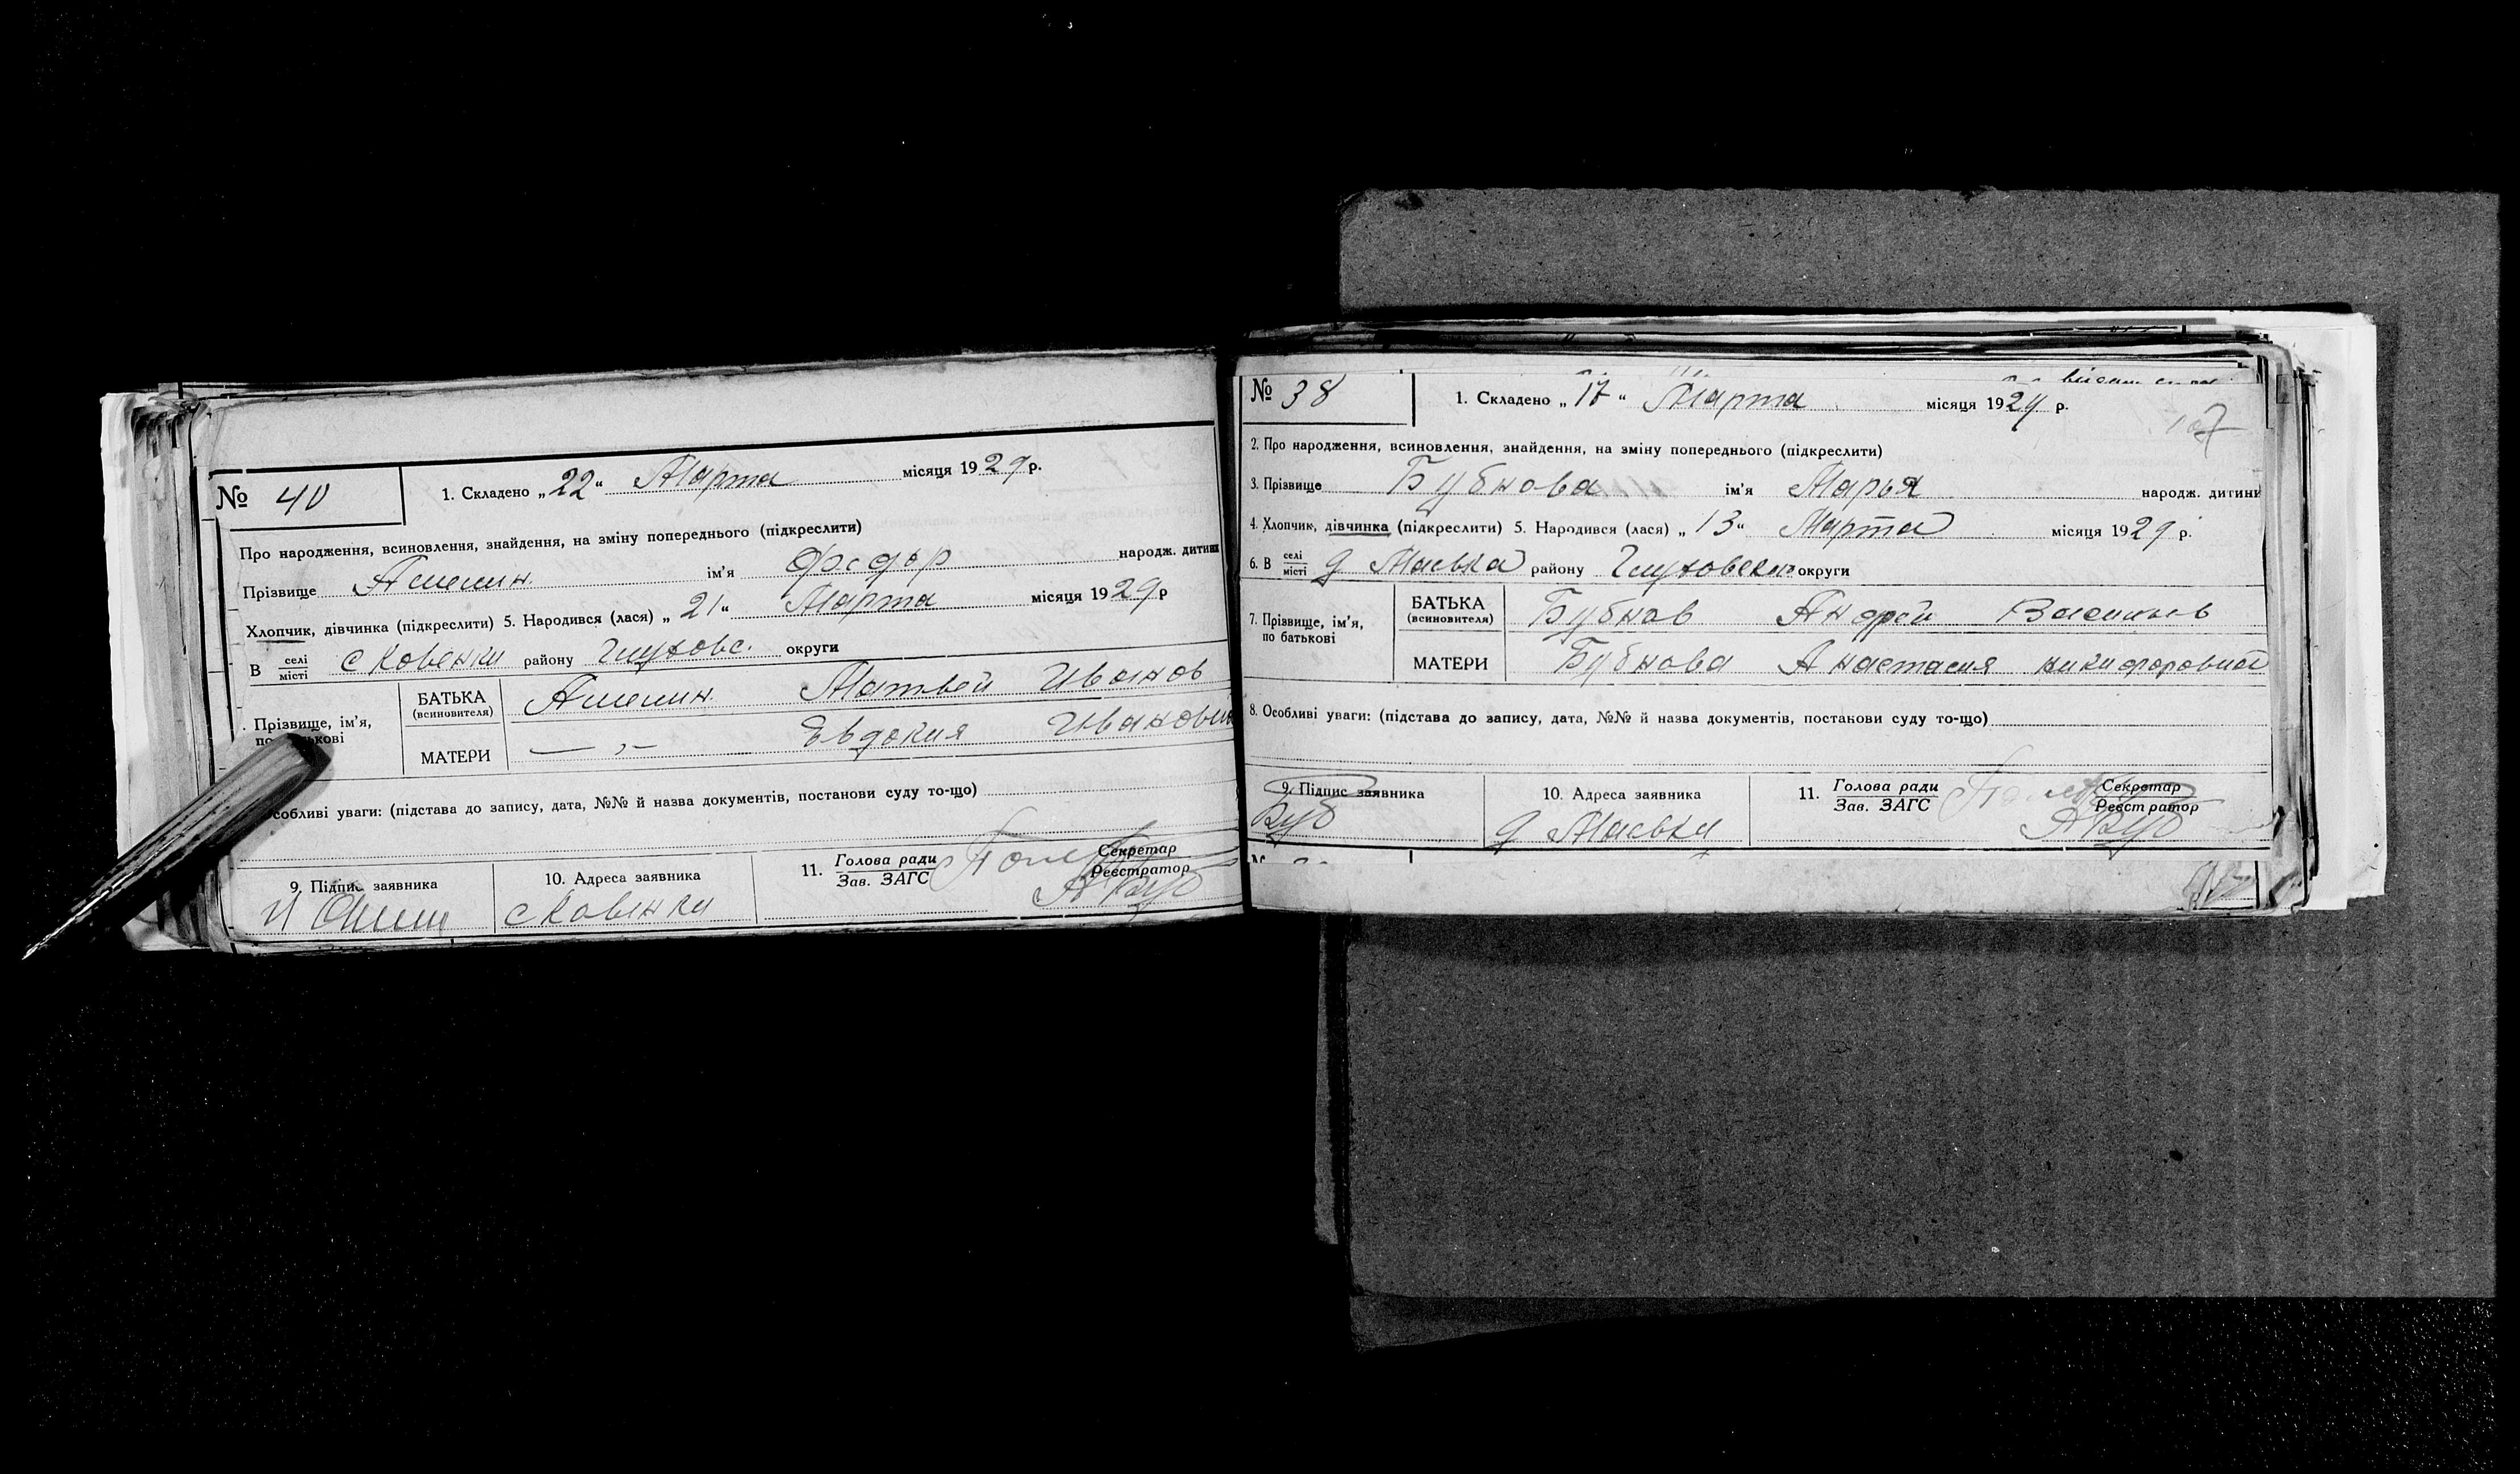 № 40
1. Складено „22“ Марта місяця 1929 р.
Про народження, всиновлення, знайдення, на зміну попереднього (підкреслити)
Прізвище Апенин. ім'я Федор народж. дитини
Хлопчик, дівчинка (підкреслити) 5. Народився (лася) „21“ Марта місяця 1929 р
В селі місті с Ковенки району Глуховс. округи
Прізвище, ім'я,
БАТЬКА (всиновителя) Матвей Иванов
МАТЕРИ — „ — Евдокия
собливі уваги: (підстава до запису, дата, №№ й назва документів, постанови суду то-що)
9. Підпис заявника 10. Адреса заявника 11. Голова ради Секретар
Зав. ЗАГС Реєстратор
с Ковенки
№ 38
1. Складено „17“ Марта місяця 1929 р.
2. Про народження, всиновлення, знайдення, на зміну попереднього (підкреслити)
3. Прізвище Бубнова ім'я Марья народж. дитини
4. Хлопчик, дівчинка (підкреслити) 5. Народився (лася) „13“ Марта місяця 1929 р.
6. В селі місті д Маевка району Глуховского округи
7. Прізвище, ім'я, по батькові
БАТЬКА (всиновителя) Бубнов Андрей Васильев
МАТЕРИ Бубнова Анастасия никифоровна
8. Особливі уваги: (підстава до запису, дата, №№ й назва документів, постанови суду то-що)
9. Підпис заявника 10. Адреса заявника 11. Голова ради Секретар
Зав. ЗАГС Реєстратор
Буб д Маевка АБуб